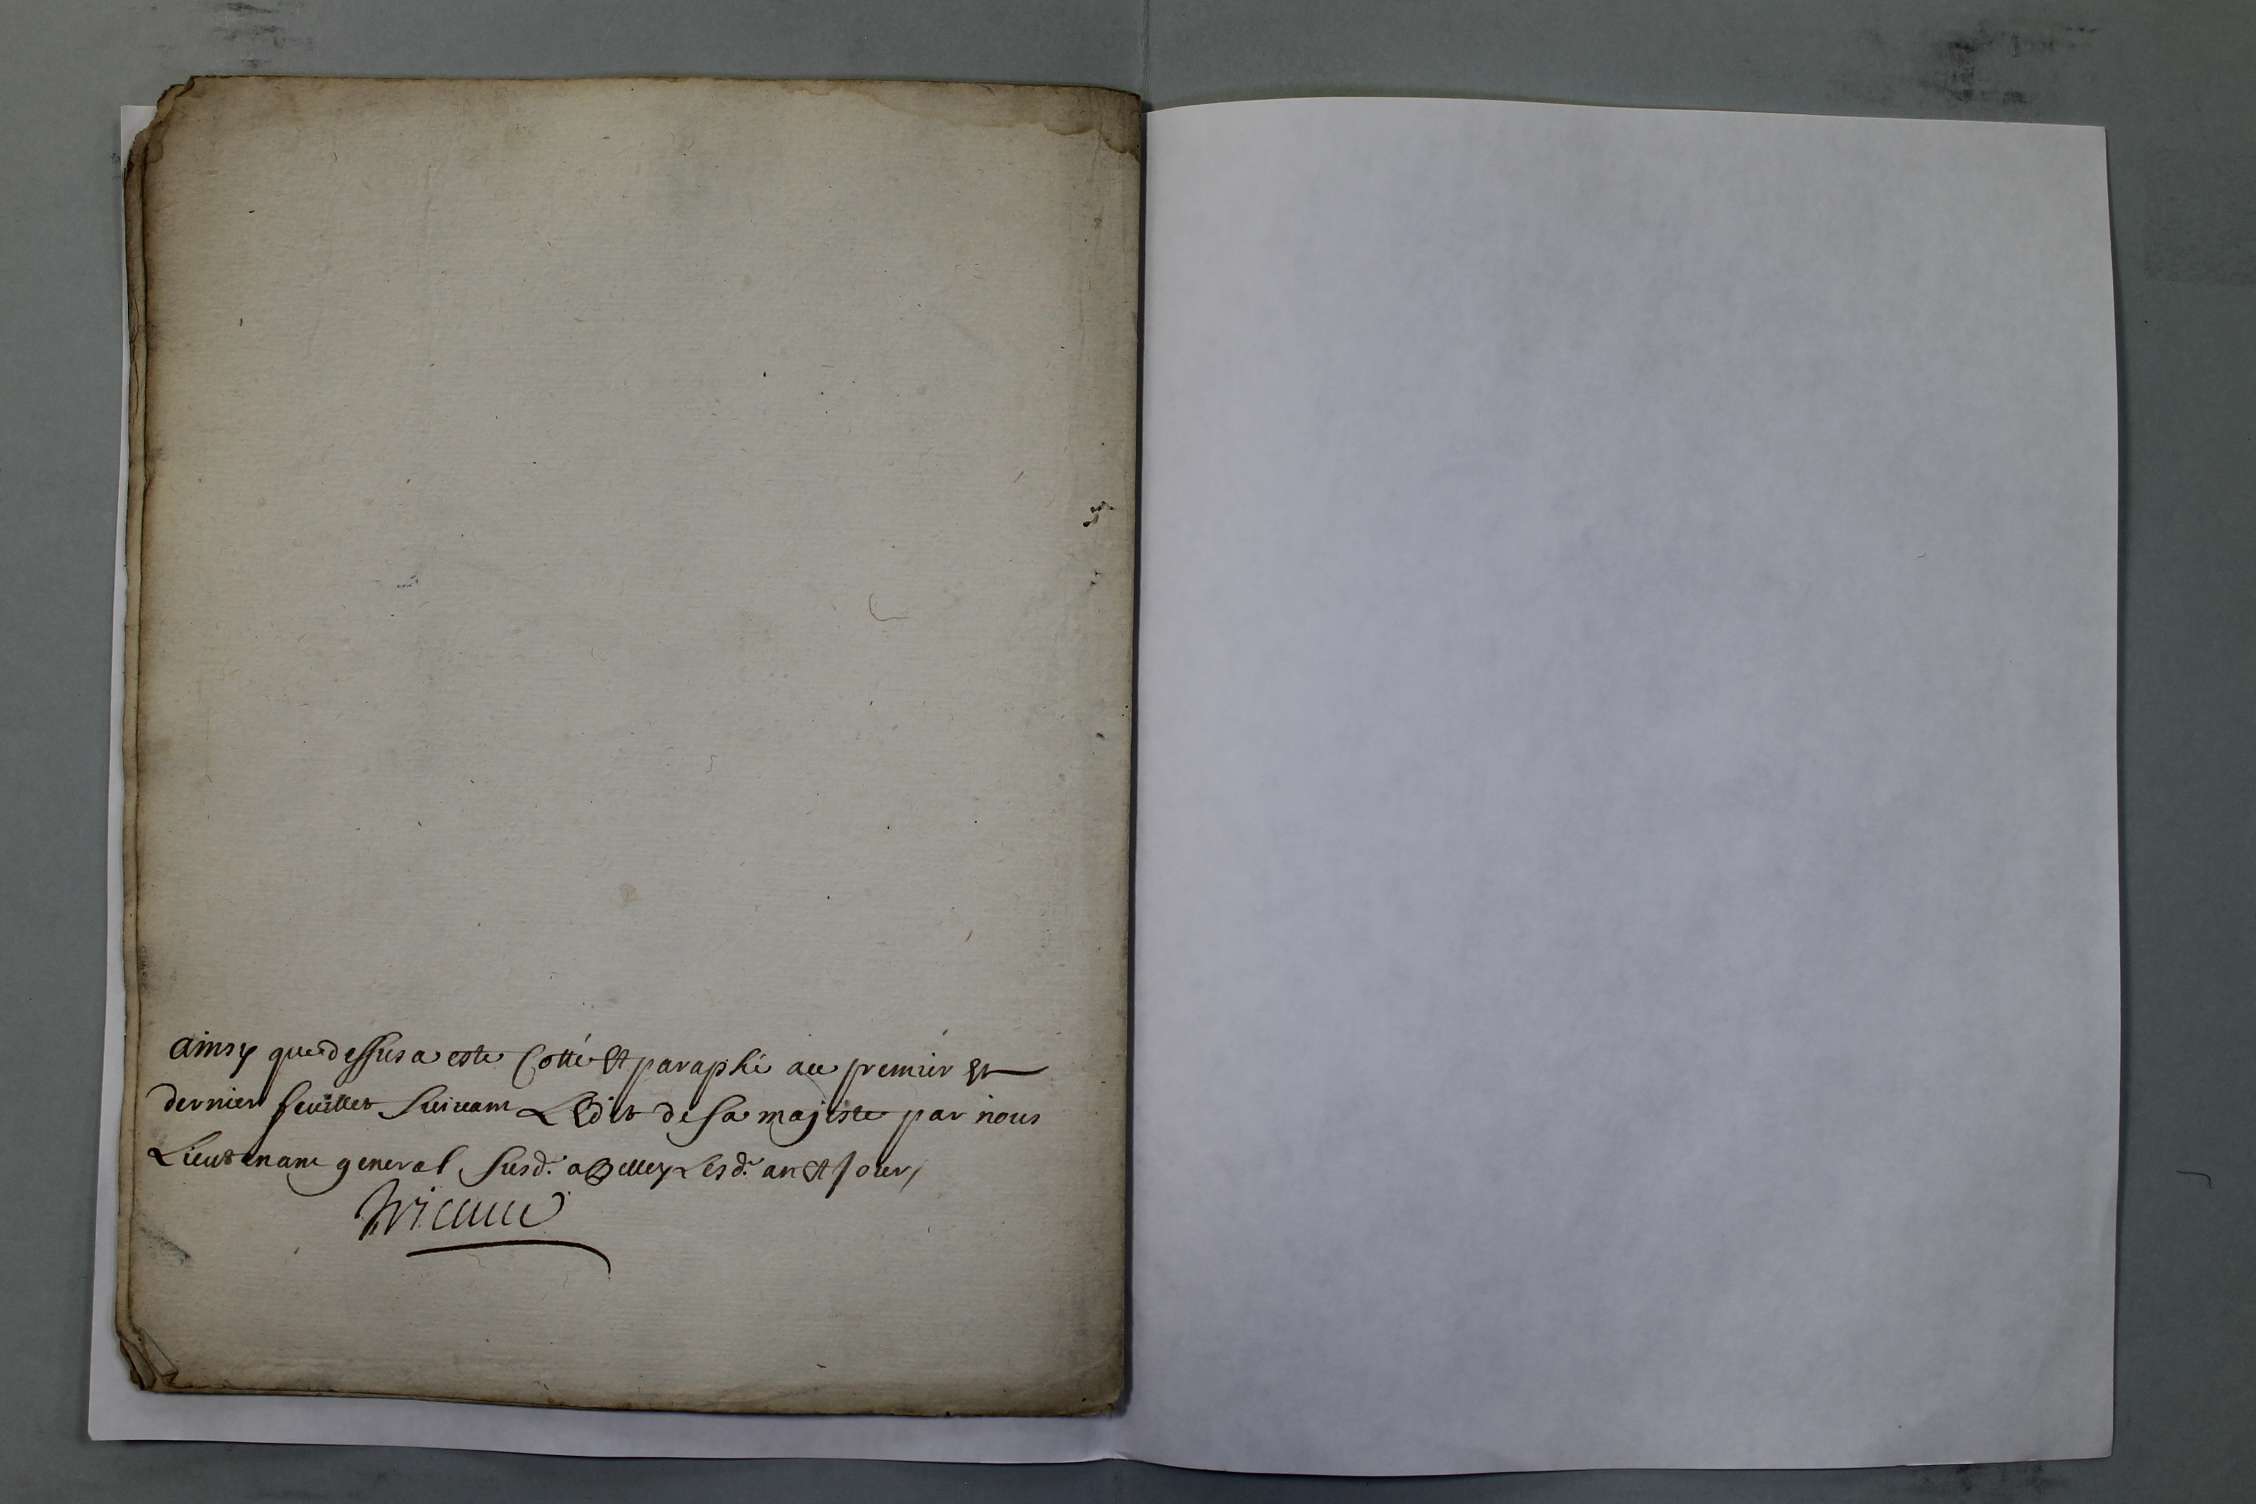 ainsy que dessus a este Cotté Et paraphé au premier Et
dernier feuillet Suivant L'Edit de Sa majesté par nous
Lieutenant general Susd. a Belley Lesd. an Et Jour,